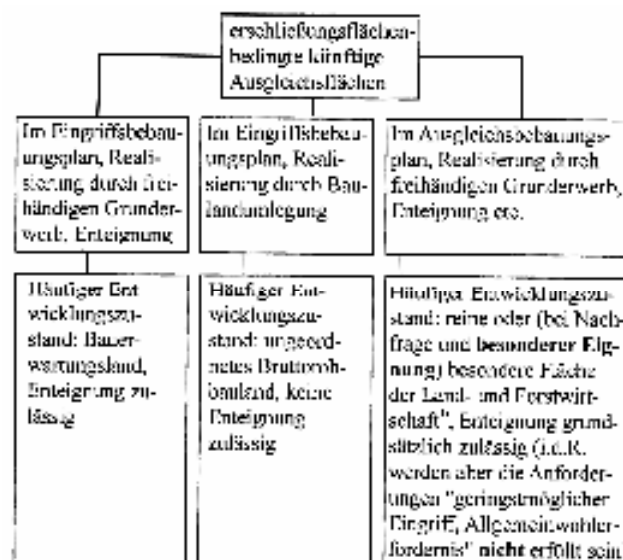 erschließungsflächen-
bedingte künftige
Ausgleichsflächen
Im Eingriffsbebau-
ungsplan, Reali-
sierung durch frei-
händigen Grunder-
werb, Enteignung
Im Eingriffsbebau-
ungsplan, Reali-
sierung durch Bau-
landumlegung
Im Ausgleichsbebauungs-
plan, Realisierung durch
freihändigen Grunderwerb,
Enteignung etc.
Häufiger Ent
wicklungszu-
stand: Bauer-
wartungsland,
Enteignung zu-
lässig
Häufiger Ent-
wicklungszu-
stand: ungeord-
netes Bruttoroh-
bauland, keine
Enteignung
zulässig
Häufiger Entwicklungszu-
stand: reine oder (bei Nach-
frage und besonderer Eig-
nung) besondere Fläche
der Land- und Forstwirt-
schaft", Enteignung grund-
sätzlich zulässig (i.d.R.
werden aber die Anforder-
ungen "geringstmöglicher
Eingriff, Allgemeinwohler-
fordernis" nicht erfüllt sein